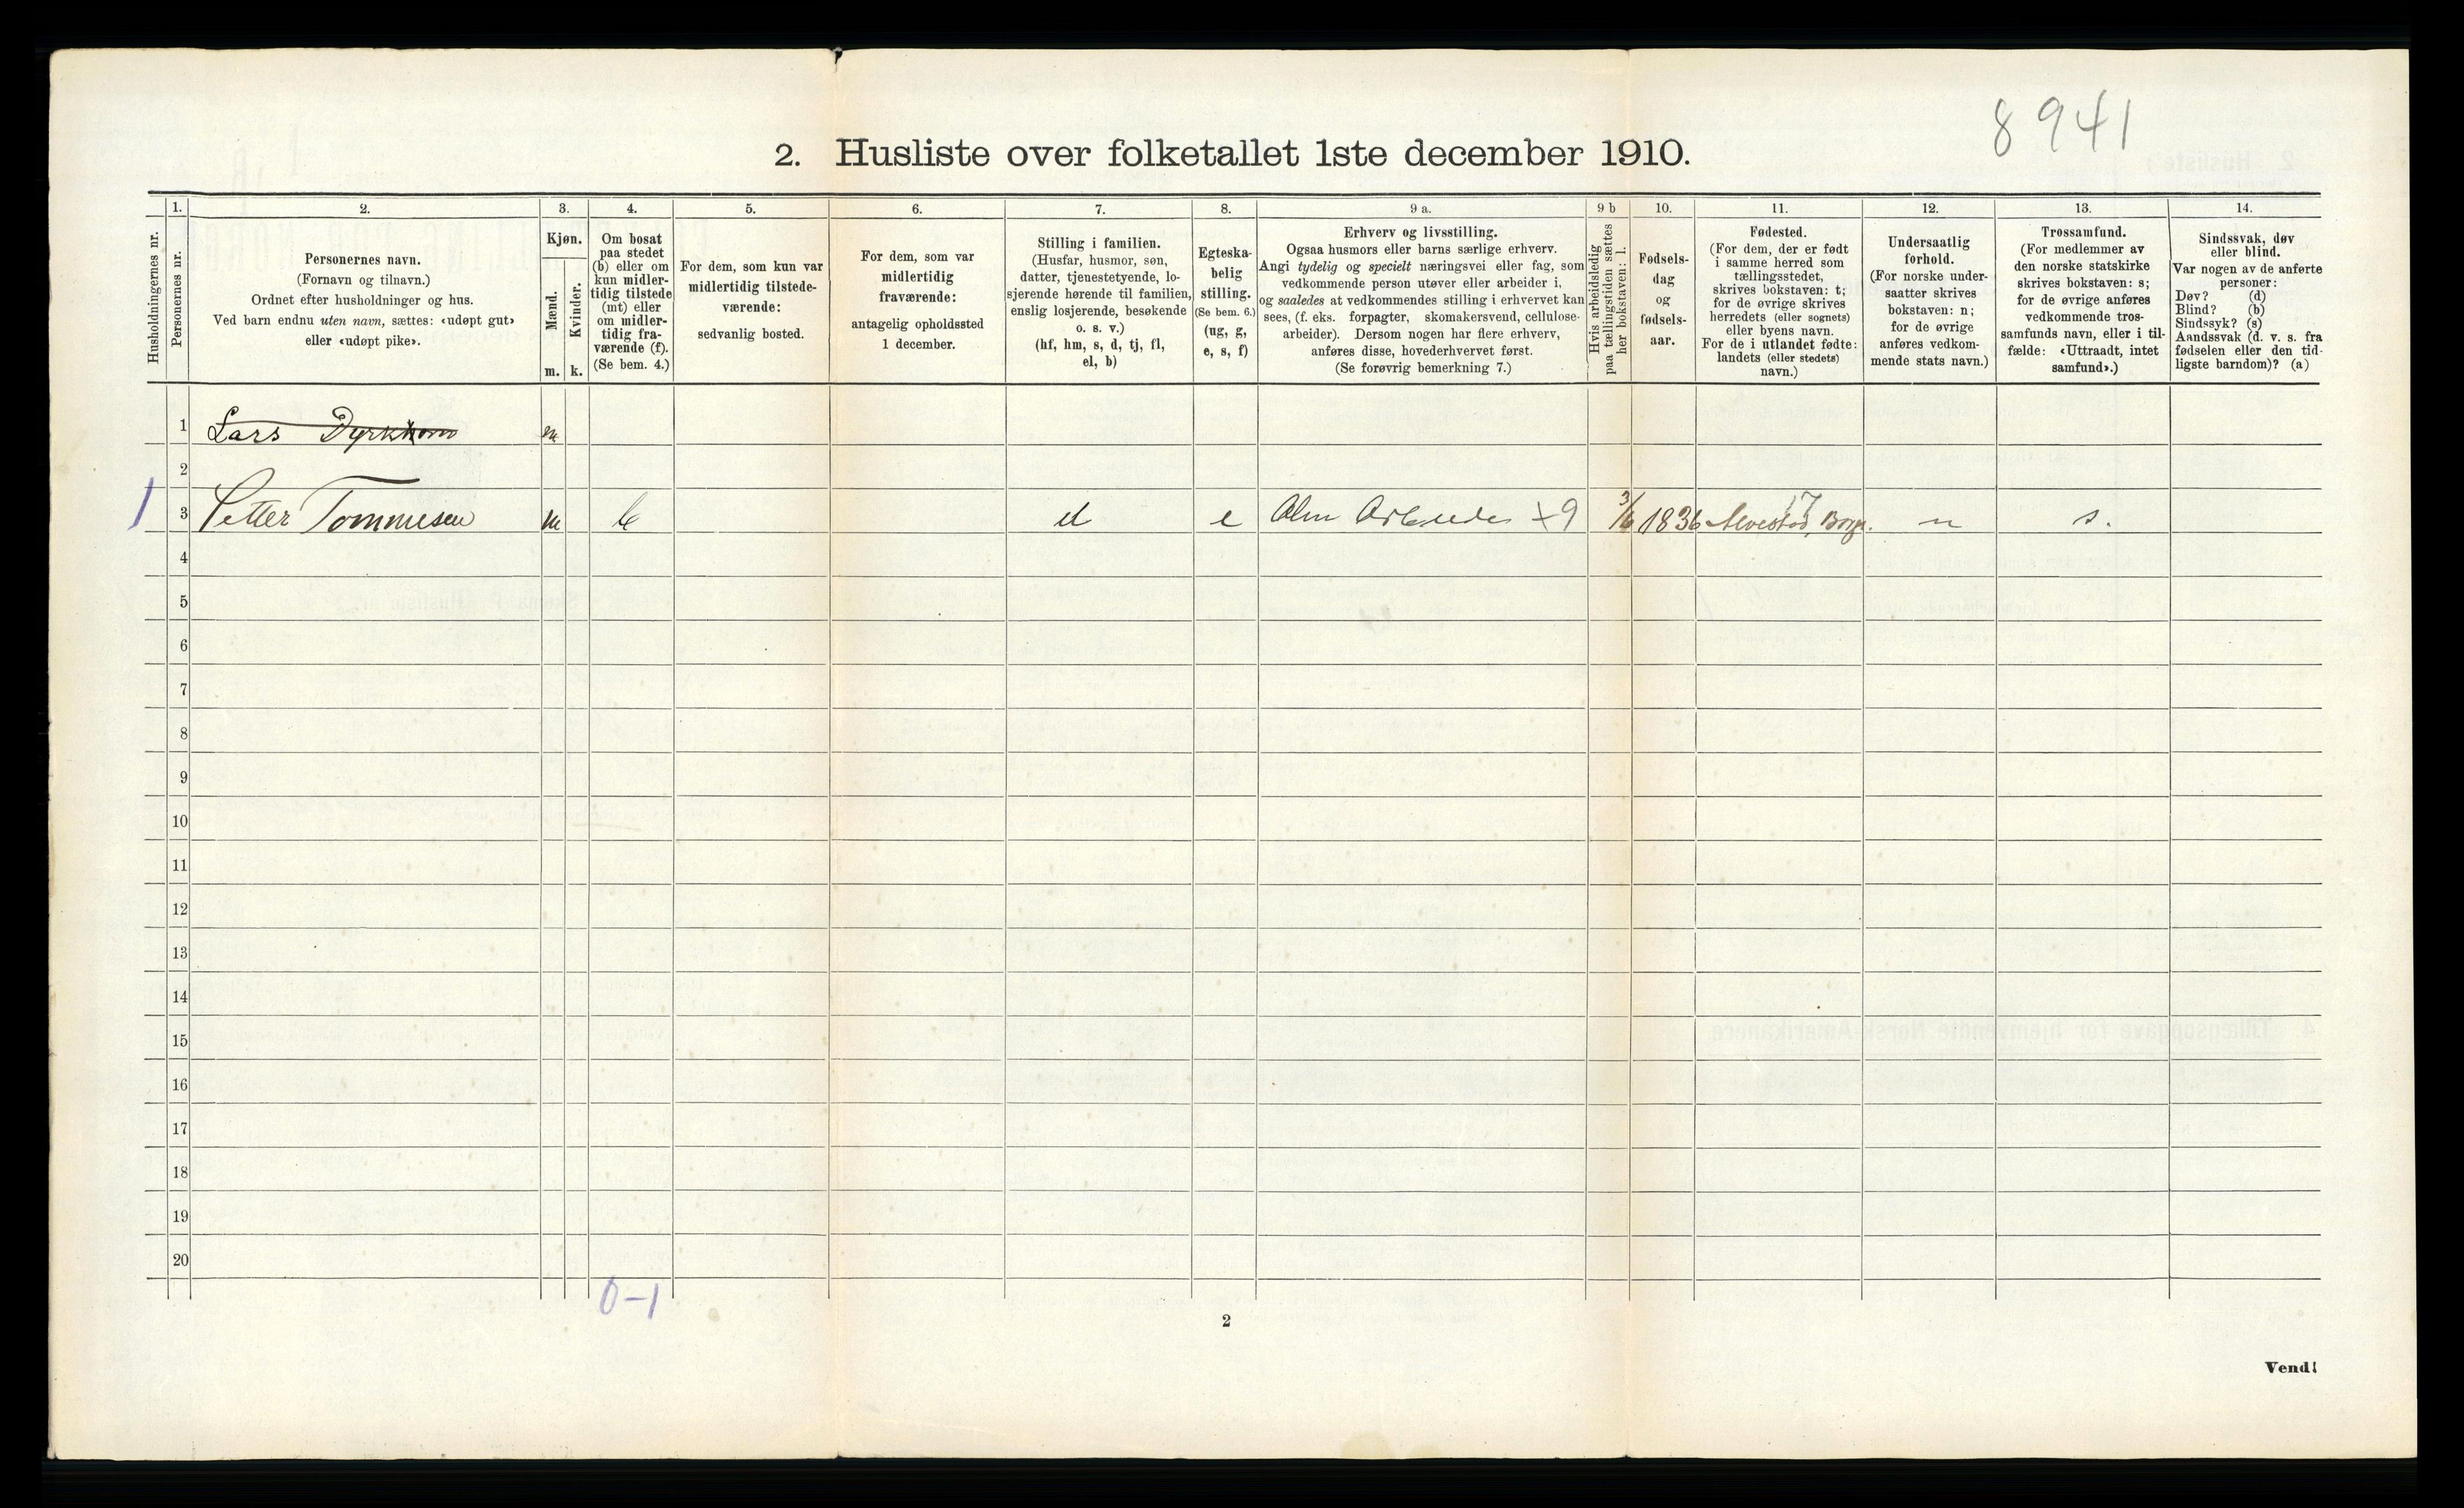 8941
2. Husliste over folketallet 1ste december 1910.
Husholdningernes nr.
1.
Personernes nr.
2.
Personernes navn.
(Fornavn og tilnavn.)
Ordnet efter husholdninger og hus.
Ved barn endnu uten navn, sættes: «udøpt gut»
eller «udøpt pike».
3.
Kjøn.
Mænd.
Kvinder.
m. k.
4.
Om bosat
paa stedet
(b) eller om
kun midler-
tidig tilstede
(mt) eller
om midler-
tidig fra-
værende (f).
(Se bem. 4.)
5.
For dem, som kun var
midlertidig tilstede-
værende:
sedvanlig bosted.
6.
For dem, som var
midlertidig
fraværende:
antagelig opholdssted
1 december.
7.
Stilling i familien.
(Husfar, husmor, søn,
datter, tjenestetyende, lo-
sjerende hørende til familien,
enslig losjerende, besøkende
o. s. v.)
(hf, hm, s, d, tj, fl,
el, b)
8.
Egteska-
belig
stilling.
(Se bem. 6.)
(ug, g,
e, s, f)
9 a.
Erhverv og livsstilling.
Ogsaa husmors eller barns særlige erhverv.
Angi tydelig og specielt næringsvei eller fag, som
vedkommende person utøver eller arbeider i,
og saaledes at vedkommendes stilling i erhvervet kan
sees, (f. eks. forpagter, skomakersvend, cellulose-
arbeider). Dersom nogen har flere erhverv,
anføres disse, hovederhvervet først.
(Se forøvrig bemerkning 7.)
9 b
Hvis arbeidsledig
paa tællingstiden sættes
her bokstaven: l.
10.
Fødsels-
dag
og
fødsels-
aar.
11.
Fødested.
(For dem, der er født
i samme herred som
tællingsstedet,
skrives bokstaven: t;
for de øvrige skrives
herredets (eller sognets)
eller byens navn.
For de i utlandet fødte:
landets (eller stedets)
navn.)
12.
Undersaatlig
forhold.
(For norske under-
saatter skrives
bokstaven: n;
for de øvrige
anføres vedkom-
mende stats navn.)
13.
Trossamfund.
(For medlemmer av
den norske statskirke
skrives bokstaven: s;
for de øvrige anføres
vedkommende tros-
samfunds navn, eller i til-
fælde: «Uttraadt, intet
samfund».)
14.
Sindssvak, døv
eller blind.
Var nogen av de anførte
personer:
Døv? (d)
Blind? (b)
Sindssyk? (s)
Aandssvak (d. v. s. fra
fødselen eller den tid-
ligste barndom)? (a)
1 Lars m
2
1 3 Petter Tommesen m b el e Alm Arbeider +9 3/6 1836 17 n s.
4
5
6
7
8
9
10
11
12
13
14
15
16
17
18
19
20
0-1
2
Vend!